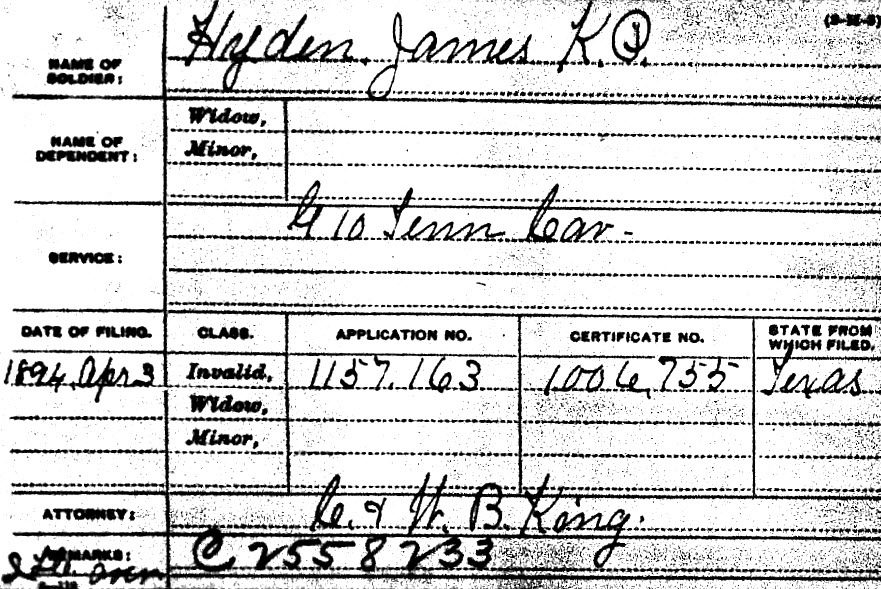 NAME OF SOLDIER: Hyden, James K. P.
NAME OF DEPENDENT: Widow,
Minor,
SERVICE: G 10 Tenn Cav-
DATE OF FILING. CLASS. APPLICATION NO. CERTIFICATE NO. STATE FROM WHICH FILED.
1894, Apr 3 Invalid, 1157.163 1006,755 Texas
Widow,
Minor,
ATTORNEY: C. & W. B. King.
REMARKS: C 2558233